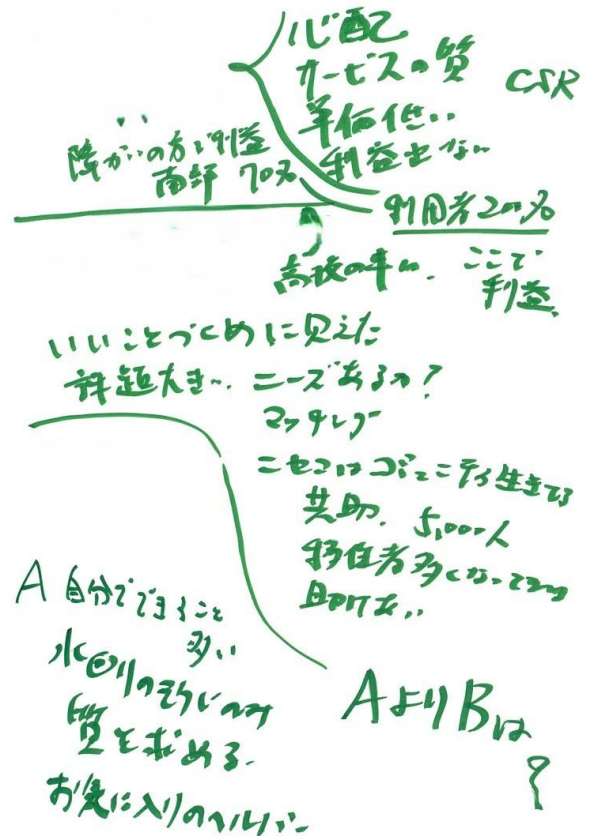 心配
サービスの質
CSR
単価低い
利益出ない
障がいの方で利益
面評 70%
利用者200%
ここで
利益
高技の率が
いいことづくめに見えた
課題大きい ニーズあるの?
マッチング
ニセコはコミュニティ生きてる
共助 5,000人
移住者多くなってる
助け合い
A 自分でできること
多い
水回りのそうじのみ
質を求める
お気に入りのヘルパー
AよりBは
?